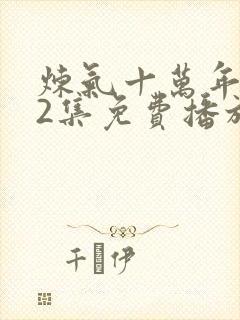 煉氣十萬年
2集免費播放
千 伊